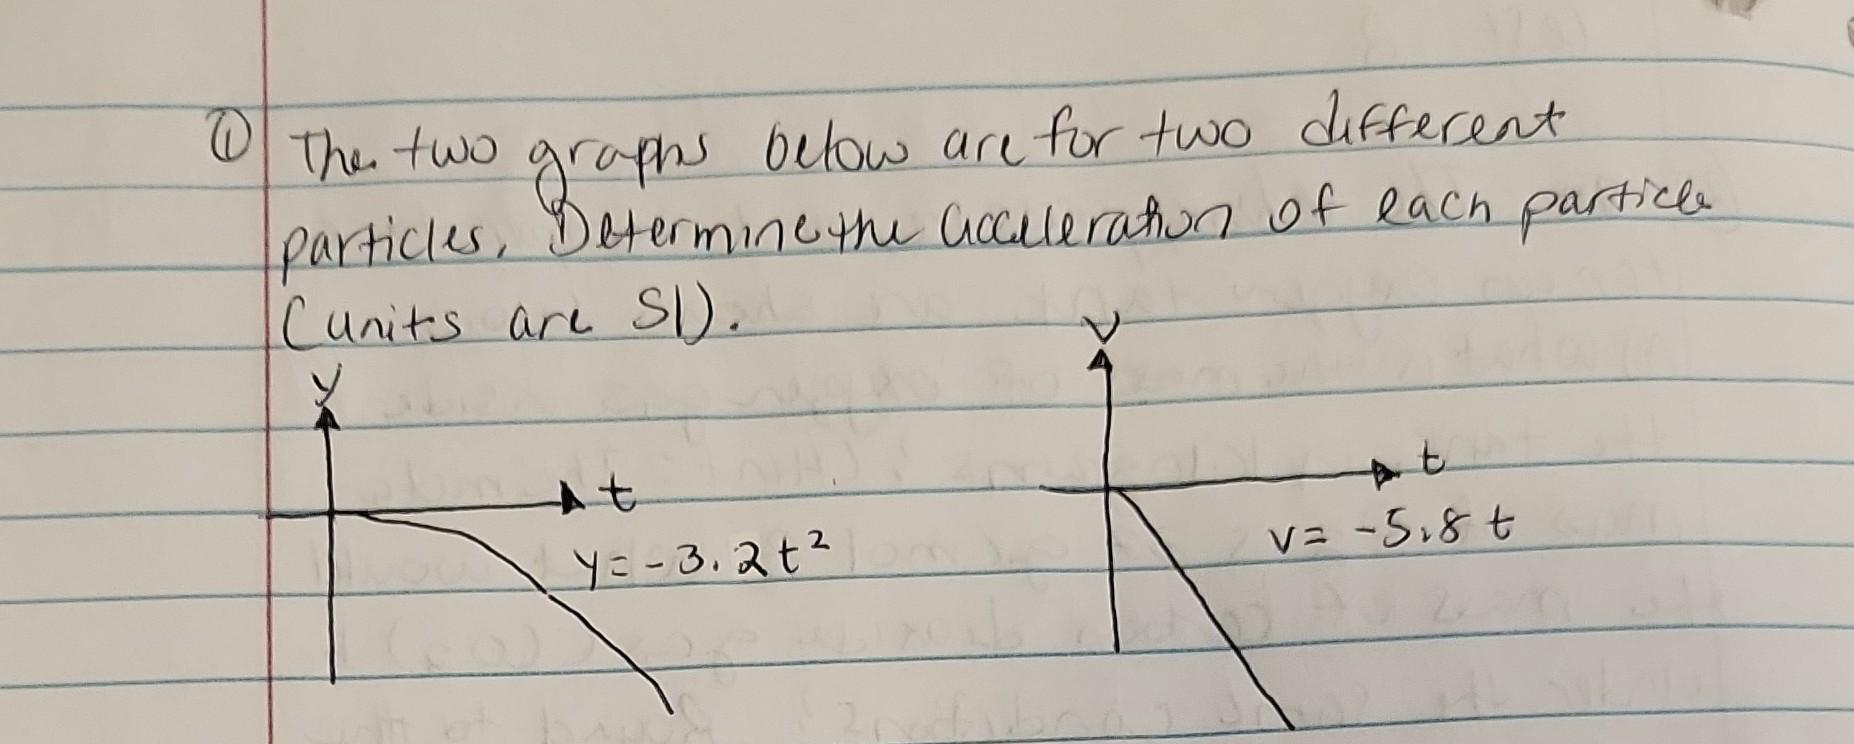 ① The two graphs below are for two different
particles. Determine the acceleration of each particle
(units are SI).
y
v
t
t
y = -3.2t²
v = -5.8t